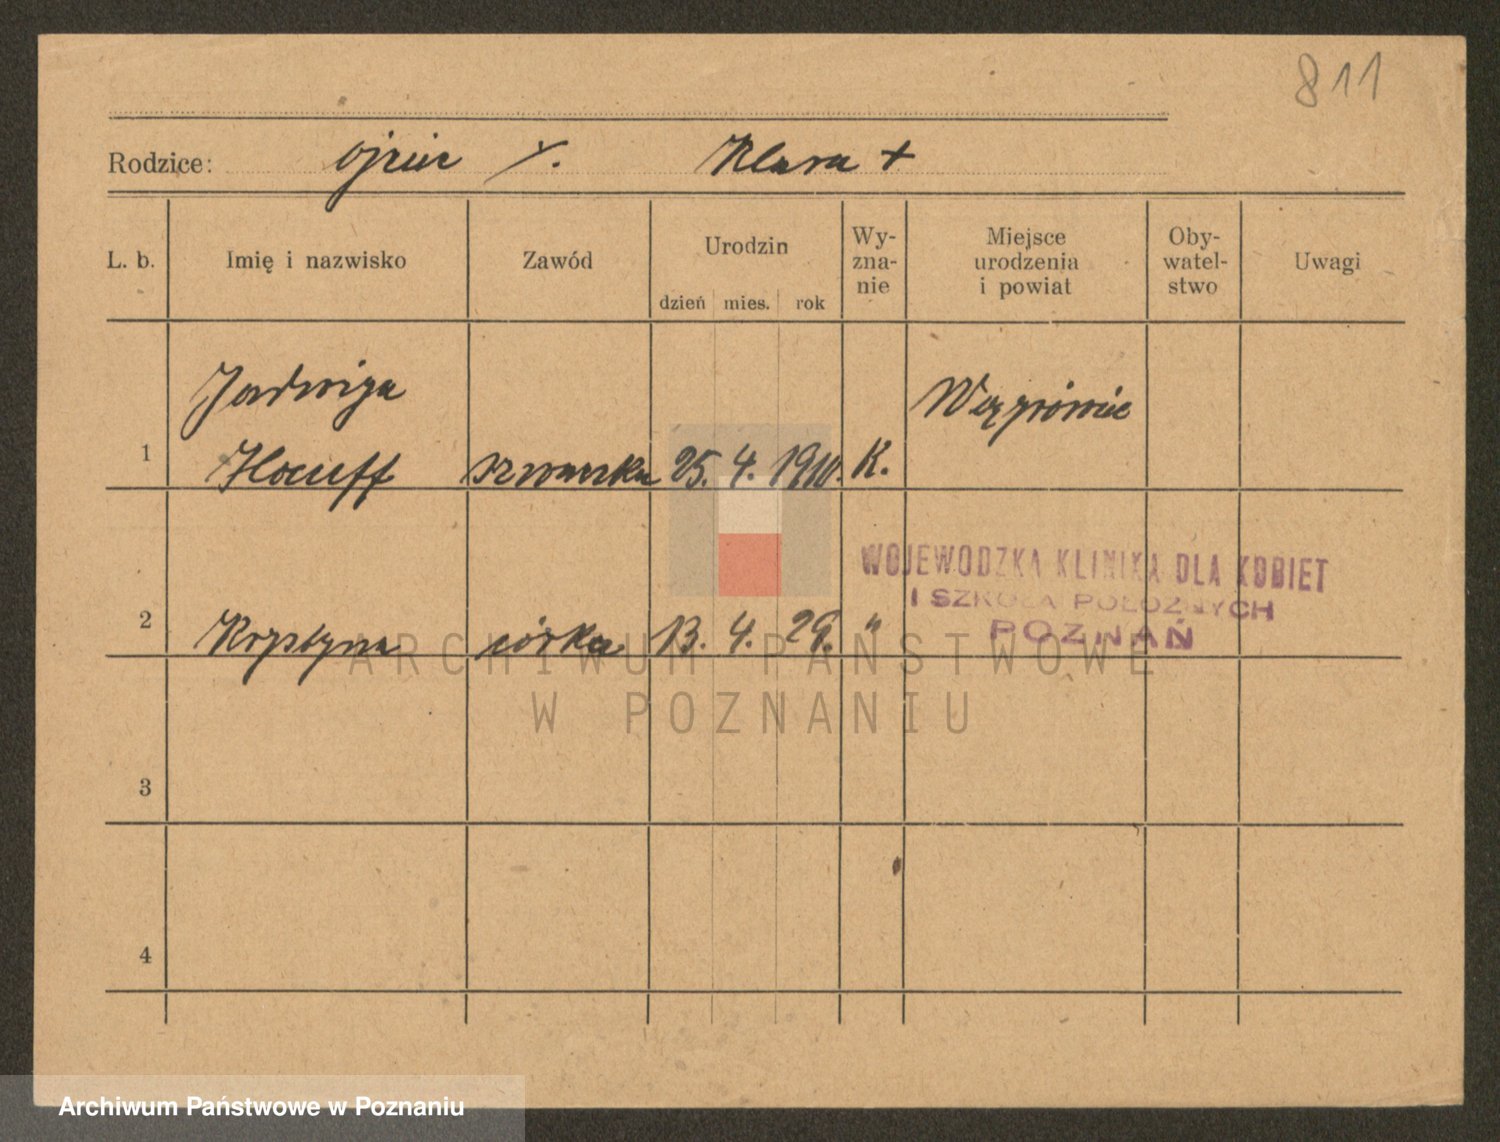 811
Rodzice: ojciec Klara +
L. b. Imię i nazwisko Zawód Urodzin Wy-zna-nie Miejsce urodzenia i powiat Oby-watel-stwo Uwagi
dzień mies. rok
Jadwiga Wągrówiec
1 szwaczka 25. 4. 1910. K.
WOJEWODZKA KLINIKA DLA KOBIET
I SZKOŁA POŁOŻNYCH
POZNAŃ
2 Krystyna córka 13. 4. 29. "
ARCHIWUM PAŃSTWOWE
W POZNANIU
3
4
Archiwum Państwowe w Poznaniu